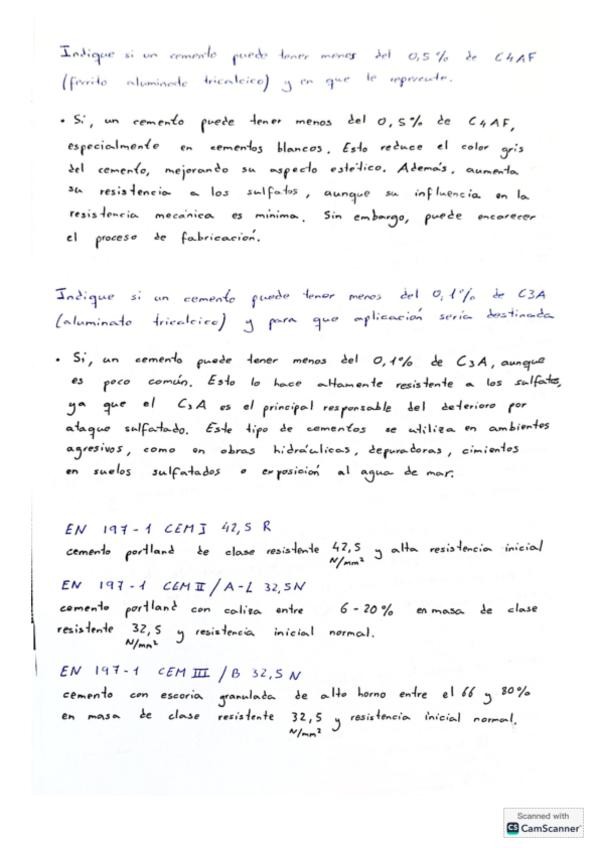 Indique si un cemento puede tener menos del 0,5% de C4AF
(ferrito aluminato tricalcico) y en que le repercute.
• Si, un cemento puede tener menos del 0,5% de C4AF,
especialmente en cementos blancos. Esto reduce el color gris
del cemento, mejorando su aspecto estético. Además, aumenta
su resistencia a los sulfatos, aunque su influencia en la
resistencia mecánica es mínima. Sin embargo, puede encarecer
el proceso de fabricación.
Indique si un cemento puede tener menos del 0,1% de C3A
(aluminato tricalcico) y para que aplicación seria destinada
• Si, un cemento puede tener menos del 0,1% de C3A, aunque
es poco común. Esto lo hace altamente resistente a los sulfatos,
ya que el C3A es el principal responsable del deterioro por
ataque sulfatado. Este tipo de cementos se utiliza en ambientes
agresivos, como en obras hidráulicas, depuradoras, cimientos
en suelos sulfatados o exposición al agua de mar.
EN 197-1 CEM I 42,5 R
cemento portland de clase resistente 42,5 N/mm² y alta resistencia inicial
EN 197-1 CEM II / A-L 32,5N
cemento portland con caliza entre 6-20% en masa de clase
resistente 32,5 N/mm² y resistencia inicial normal.
EN 197-1 CEM III / B 32,5 N
cemento con escoria granulada de alto horno entre el 66 y 80%
en masa de clase resistente 32,5 N/mm² y resistencia inicial normal.
Scanned with
CS CamScanner